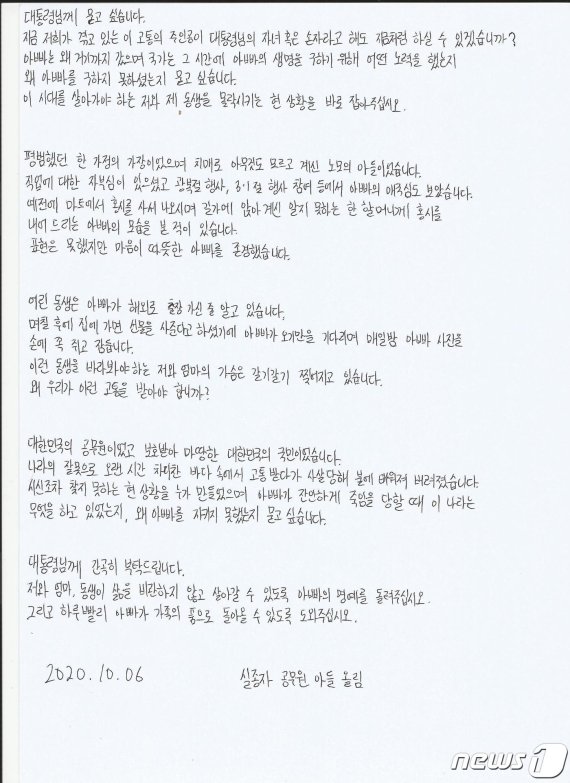 대통령님께 묻고 싶습니다.
지금 저희가 겪고 있는 이 고통의 주인공이 대통령님의 자녀 혹은 손자라고 해도 지금처럼 하실 수 있겠습니까?
아빠는 왜 거기까지 갔으며 국가는 그 시간에 아빠의 생명을 구하기 위해 어떤 노력을 했는지
왜 아빠를 구하지 못하셨는지 묻고 싶습니다.
이 시대를 살아가야 하는 저와 제 동생을 몰락시키는 현 상황을 바로 잡아주십시오.
평범했던 한 가정의 가장이었으며 치매로 아무것도 모르고 계신 노모의 아들이었습니다.
직업에 대한 자부심이 있으셨고 광복절 행사, 3·1절 행사 참여 등에서 아빠의 애국심도 보았습니다.
예전에 마트에서 홍시를 사서 나오시며 길가에 앉아 계신 알지 못하는 한 할머니께 홍시를
내어 드리는 아빠의 모습을 본 적이 있습니다.
표현은 못했지만 마음이 따뜻한 아빠를 존경했습니다.
어린 동생은 아빠가 해외로 출장 가신 줄 알고 있습니다.
며칠 후에 집에 가면 선물을 사준다고 하셨기에 아빠가 오기만을 기다리며 매일밤 아빠 사진을
손에 꼭 쥐고 잠듭니다.
이런 동생을 바라봐야하는 저와 엄마의 가슴은 갈기갈기 찢어지고 있습니다.
왜 우리가 이런 고통을 받아야 합니까?
대한민국의 공무원이었고 보호받아 마땅한 대한민국의 국민이었습니다.
나라의 잘못으로 오랜 시간 차디찬 바다 속에서 고통 받다가 사살당해 불에 태워져 버려졌습니다.
시신조차 찾지 못하는 현 상황을 누가 만들었으며 아빠가 잔인하게 죽임을 당할 때 이 나라는
무엇을 하고 있었는지, 왜 아빠를 지키지 못했는지 묻고 싶습니다.
대통령님께 간곡히 부탁드립니다.
저와 엄마, 동생이 삶을 비관하지 않고 살아갈 수 있도록 아빠의 명예를 돌려주십시오.
그리고 하루빨리 아빠가 가족의 품으로 돌아올 수 있도록 도와주십시오.
2020. 10. 06 실종자 공무원 아들 올림
news1